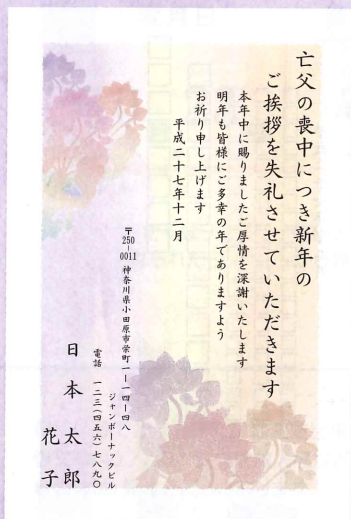 亡父の喪中につき新年の
ご挨拶を失礼させていただきます
本年中に賜りましたご厚情を深謝いたします
明年も皆様にご多幸の年でありますよう
お祈り申し上げます
平成二十七年十二月
〒250-0011 神奈川県小田原市栄町一-一四-四八
ジャンボーナックビル
電話 一二三(四五六)七八九〇
日本 太郎
花子